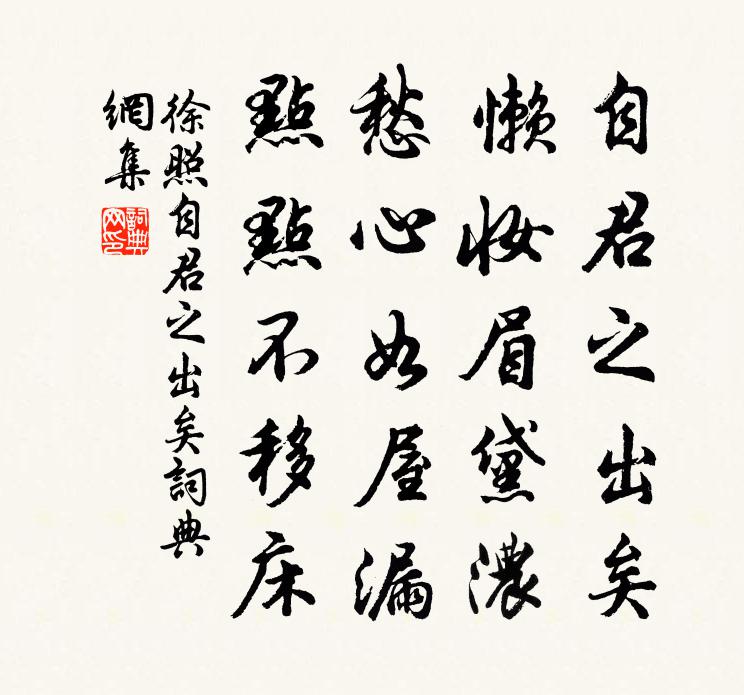 自君之出矣
懒妆眉黛濃
愁心如屋漏
點點不移床
徐照自君之出矣詞典
網集
詞典
网印